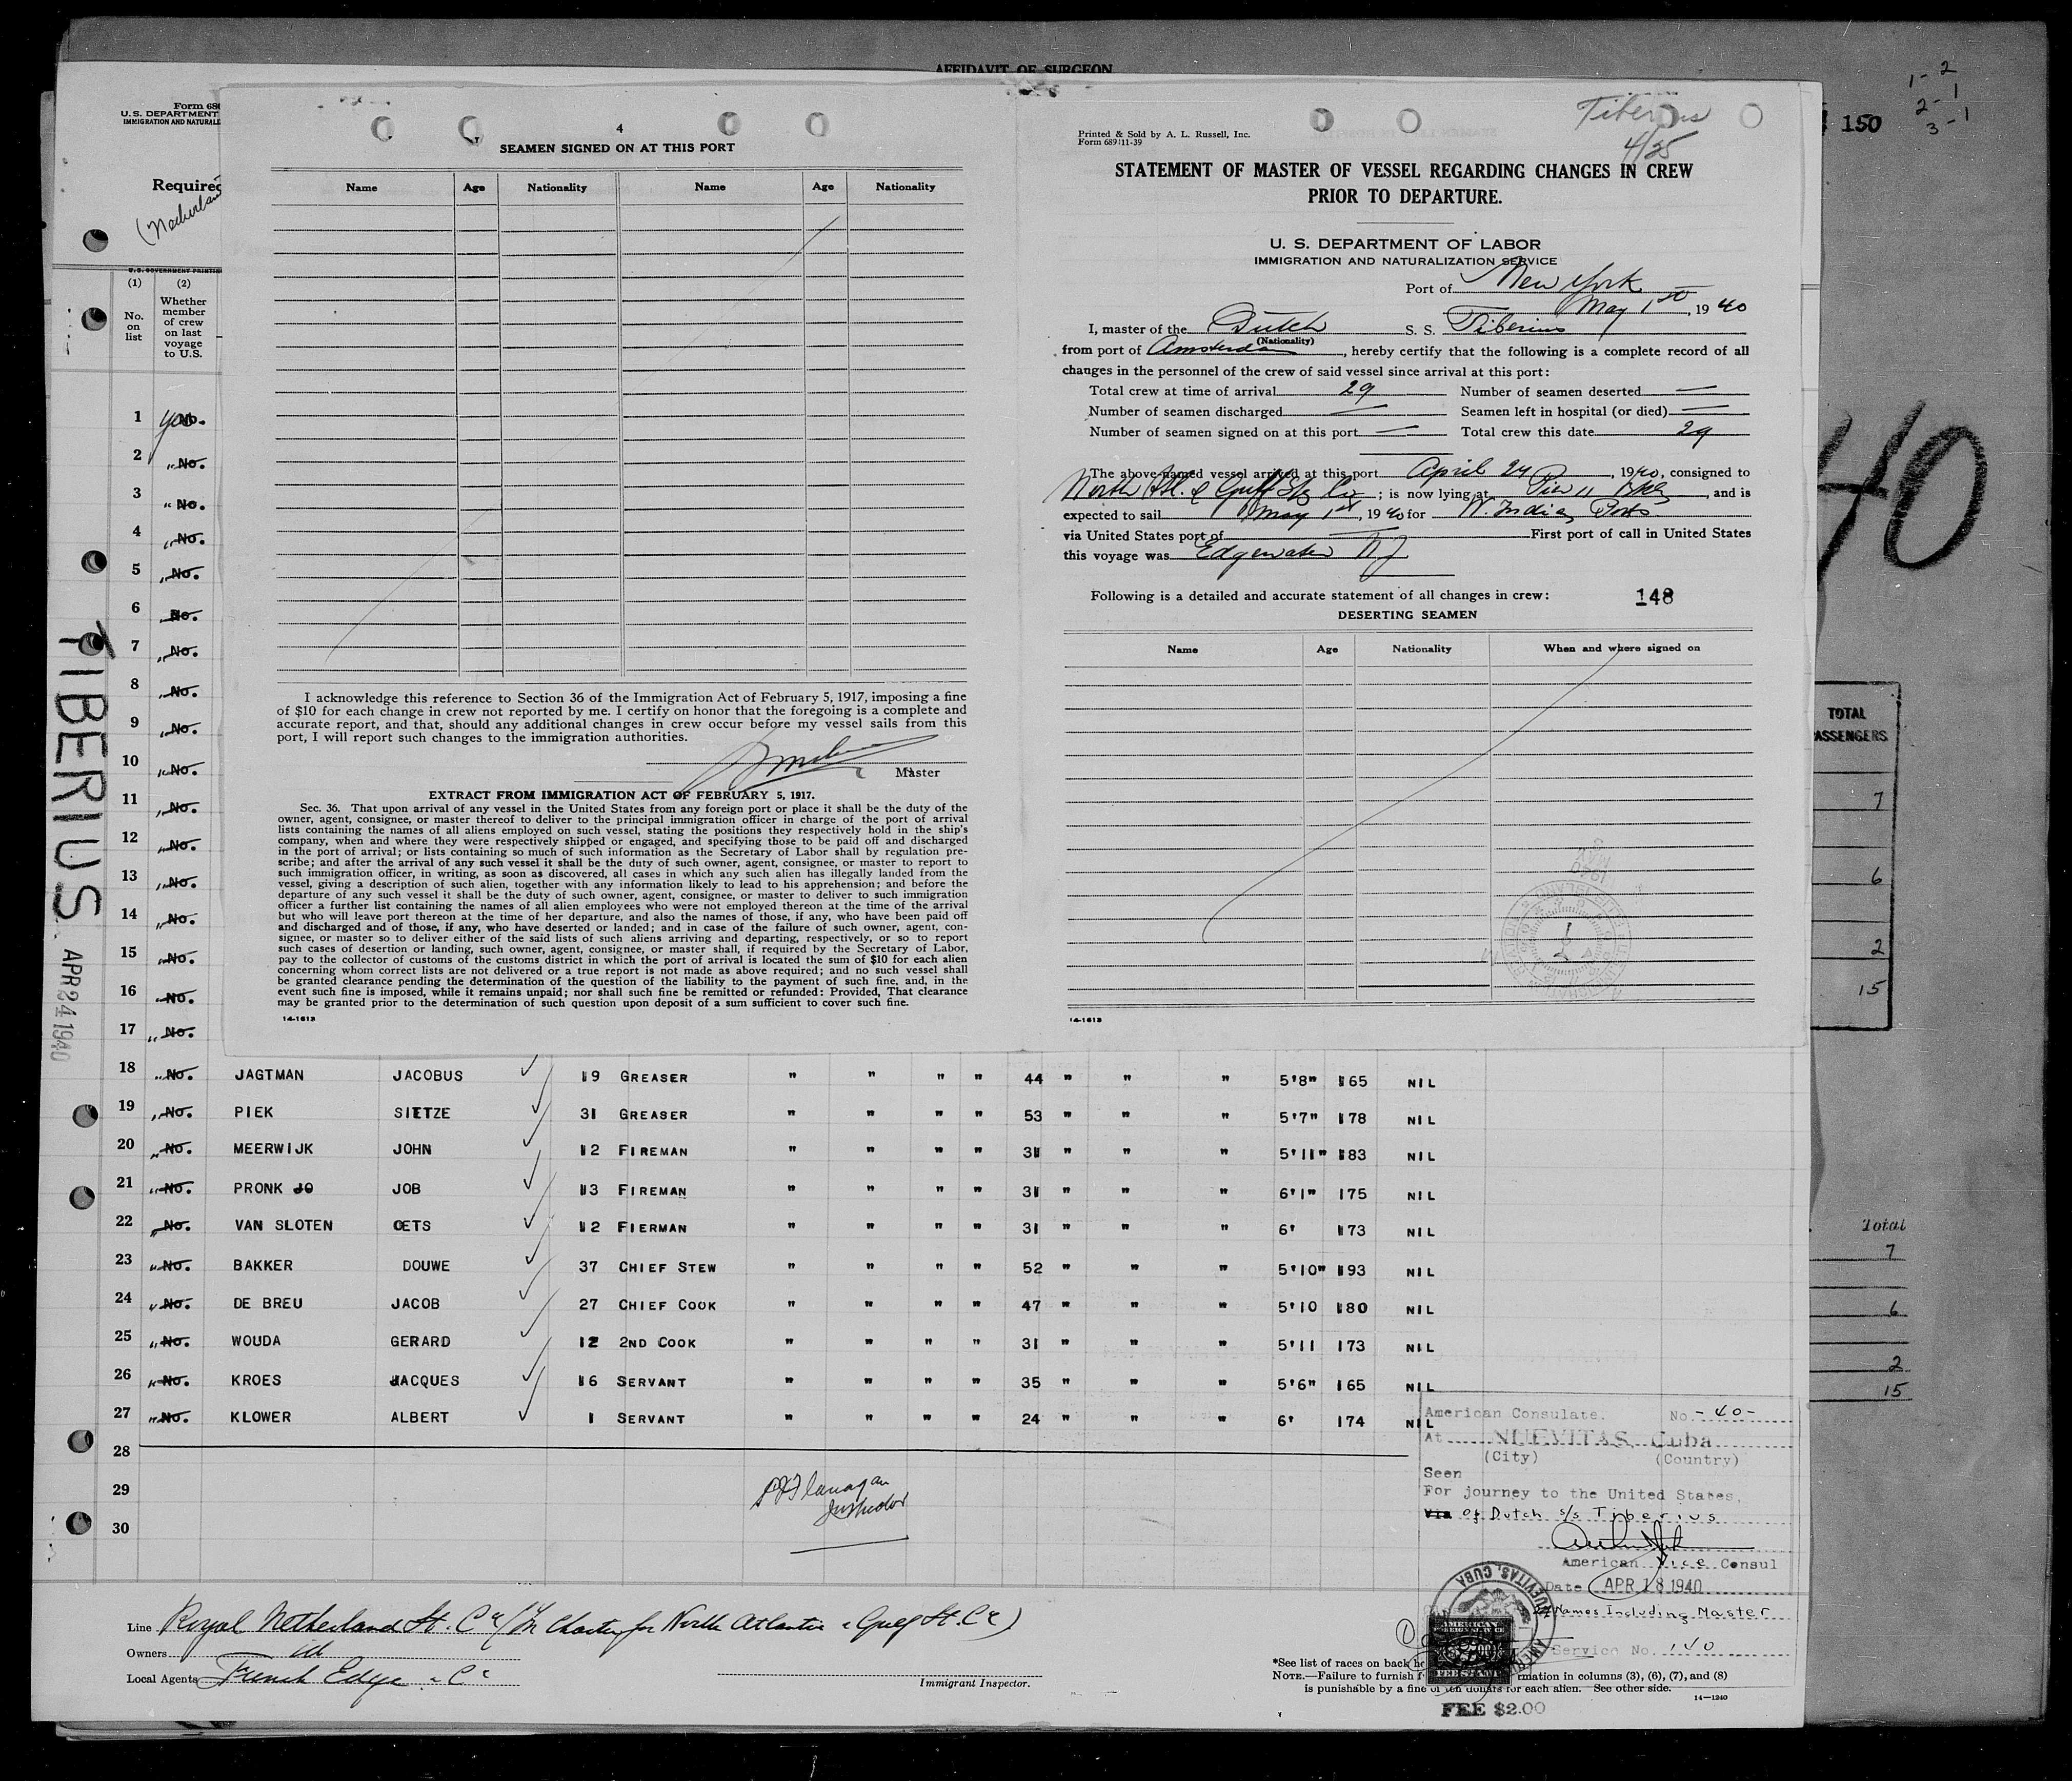 AFFIDAVIT OF SURGEON
1- 2
2- 1
3 -1
150
Form 680
U. S. DEPARTMENT
IMMIGRATION AND NATURALI
Required
(Netherlan
U. S. GOVERNMENT PRINTIN
(1) (2)
No. on list
Whether member of crew on last voyage to U.S.
TIBERIUS APR 24 1940
4
SEAMEN SIGNED ON AT THIS PORT
Name Age Nationality Name Age Nationality
I acknowledge this reference to Section 36 of the Immigration Act of February 5, 1917, imposing a fine
of $10 for each change in crew not reported by me. I certify on honor that the foregoing is a complete and
accurate report, and that, should any additional changes in crew occur before my vessel sails from this
port, I will report such changes to the immigration authorities.
Master
EXTRACT FROM IMMIGRATION ACT OF FEBRUARY 5, 1917.
Sec. 36. That upon arrival of any vessel in the United States from any foreign port or place it shall be the duty of the
owner, agent, consignee, or master thereof to deliver to the principal immigration officer in charge of the port of arrival
lists containing the names of all aliens employed on such vessel, stating the positions they respectively hold in the ship's
company, when and where they were respectively shipped or engaged, and specifying those to be paid off and discharged
in the port of arrival; or lists containing so much of such information as the Secretary of Labor shall by regulation pre-
scribe; and after the arrival of any such vessel it shall be the duty of such owner, agent, consignee, or master to report to
such immigration officer, in writing, as soon as discovered, all cases in which any such alien has illegally landed from the
vessel, giving a description of such alien, together with any information likely to lead to his apprehension; and before the
departure of any such vessel it shall be the duty of such owner, agent, consignee, or master to deliver to such immigration
officer a further list containing the names of all alien employees who were not employed thereon at the time of the arrival
but who will leave port thereon at the time of her departure, and also the names of those, if any, who have been paid off
and discharged and of those, if any, who have deserted or landed; and in case of the failure of such owner, agent, con-
signee, or master so to deliver either of the said lists of such aliens arriving and departing, respectively, or so to report
such cases of desertion or landing, such owner, agent, consignee, or master shall, if required by the Secretary of Labor,
pay to the collector of customs of the customs district in which the port of arrival is located the sum of $10 for each alien
concerning whom correct lists are not delivered or a true report is not made as above required; and no such vessel shall
be granted clearance pending the determination of the question of the liability to the payment of such fine, and, in the
event such fine is imposed, while it remains unpaid; nor shall such fine be remitted or refunded: Provided, That clearance
may be granted prior to the determination of such question upon deposit of a sum sufficient to cover such fine.
14-1613
Tiberius
4/25
Printed & Sold by A. L. Russell, Inc.
Form 689:11-39
STATEMENT OF MASTER OF VESSEL REGARDING CHANGES IN CREW
PRIOR TO DEPARTURE.
U. S. DEPARTMENT OF LABOR
IMMIGRATION AND NATURALIZATION SERVICE
Port of New York
May 1st, 1940
I, master of the Dutch S. S. Tiberius
(Nationality)
from port of Amsterdam, hereby certify that the following is a complete record of all
changes in the personnel of the crew of said vessel since arrival at this port:
Total crew at time of arrival 29 Number of seamen deserted —
Number of seamen discharged — Seamen left in hospital (or died) —
Number of seamen signed on at this port — Total crew this date 29
The above-named vessel arrived at this port April 24, 1940, consigned to
North Atl. & Gulf Stp Co; is now lying at Pier 11 Bkly, and is
expected to sail May 1st, 1940 for W. Indies Ports
via United States port of — First port of call in United States
this voyage was Edgewater NJ
Following is a detailed and accurate statement of all changes in crew: 148
DESERTING SEAMEN
Name Age Nationality When and where signed on
14-1613
40
TOTAL
PASSENGERS
7
6
2
15
Total
7
6
2
15
1 yes No.
2 " No.
3 " No.
4 " No.
5 " No.
6 No.
7 " No.
8 " No.
9 " No.
10 " No.
11 " No.
12 " No.
13 " No.
14 " No.
15 " No.
16 " No.
17 " No.
18 " No. JAGTMAN JACOBUS 19 GREASER " " " " 44 " " " 5'8" 165 NIL
19 " No. PIEK SIETZE 31 GREASER " " " " 53 " " " 5'7" 178 NIL
20 " No. MEERWIJK JOHN 12 FIREMAN " " " " 31 " " " 5'11" 183 NIL
21 " No. PRONK JO JOB 13 FIREMAN " " " " 31 " " " 6'1" 175 NIL
22 " No. VAN SLOTEN OETS 12 FIERMAN " " " " 31 " " " 6' 173 NIL
23 " No. BAKKER DOUWE 37 CHIEF STEW " " " " 52 " " " 5'10" 193 NIL
24 " No. DE BREU JACOB 27 CHIEF COOK " " " " 47 " " " 5'10 180 NIL
25 " No. WOUDA GERARD 12 2ND COOK " " " " 31 " " " 5'11 173 NIL
26 " No. KROES JACQUES 16 SERVANT " " " " 35 " " " 5'6" 165 NIL
27 " No. KLOWER ALBERT 1 SERVANT " " " " 24 " " " 6' 174 NIL
28
29
30
Flanagan
Inspector
American Consulate. No. -40-
At NUEVITAS, Cuba
(City) (Country)
Seen
For journey to the United States.
Via of Dutch s/s Tiberius
American Vice Consul
Date APR 18 1940
Names Including Master
Service No. 140
NUEVITAS, CUBA
AMERICAN
FOREIGN SERVICE
FEE STAMP
FEE $2.00
Line Royal Netherland St. Co (In Charter for North Atlantic & Gulf St. Co)
Owners id
Local Agents French Edye & Co
Immigrant Inspector.
*See list of races on back
NOTE.—Failure to furnish rmation in columns (3), (6), (7), and (8)
is punishable by a fine of ten dollars for each alien. See other side.
14—1240